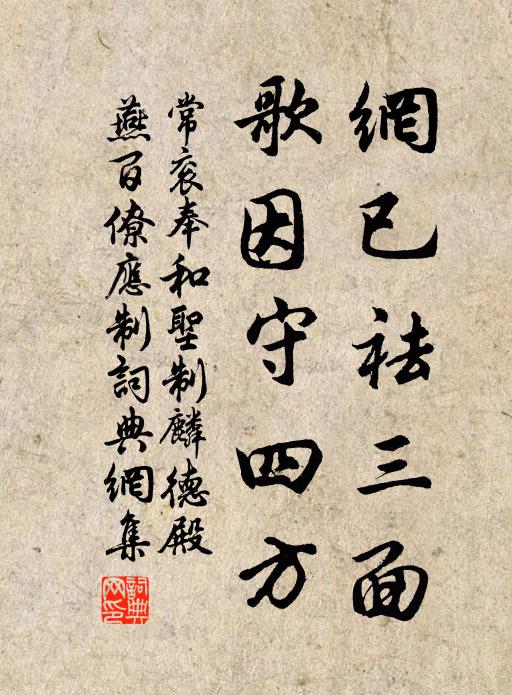 網已祛三面
歌因守四方
常袞奉和聖制麟德殿
燕百僚應制詞典網集
詞典網印